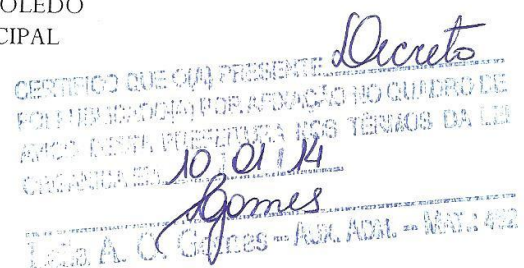 OLEDO
CIPAL
CERTIFICO QUE O(A) PRESENTE Decreto
FOI PUBLICADO(A) POR AFIXAÇÃO NO QUADRO DE
AVISO DESTA PREFEITURA NOS TERMOS DA LEI
ORGÂNICA EM 10 / 01 / 14
Gomes
A. C. Gomes - AUX. ADM. - MAT.: 492